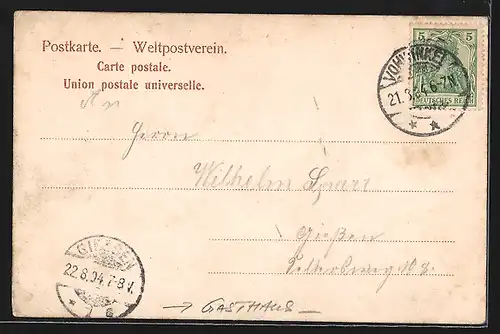 Postkarte. — Weltpostverein.
Carte postale.
Union postale universelle.
5 5
DEUTSCHES REICH
VOHWINKEL
21.8.04.6-7N.
An
Herrn
Wilhelm
Gießen
GIESSEN
22.8.04.7-8V.
→ GASTHAUS —